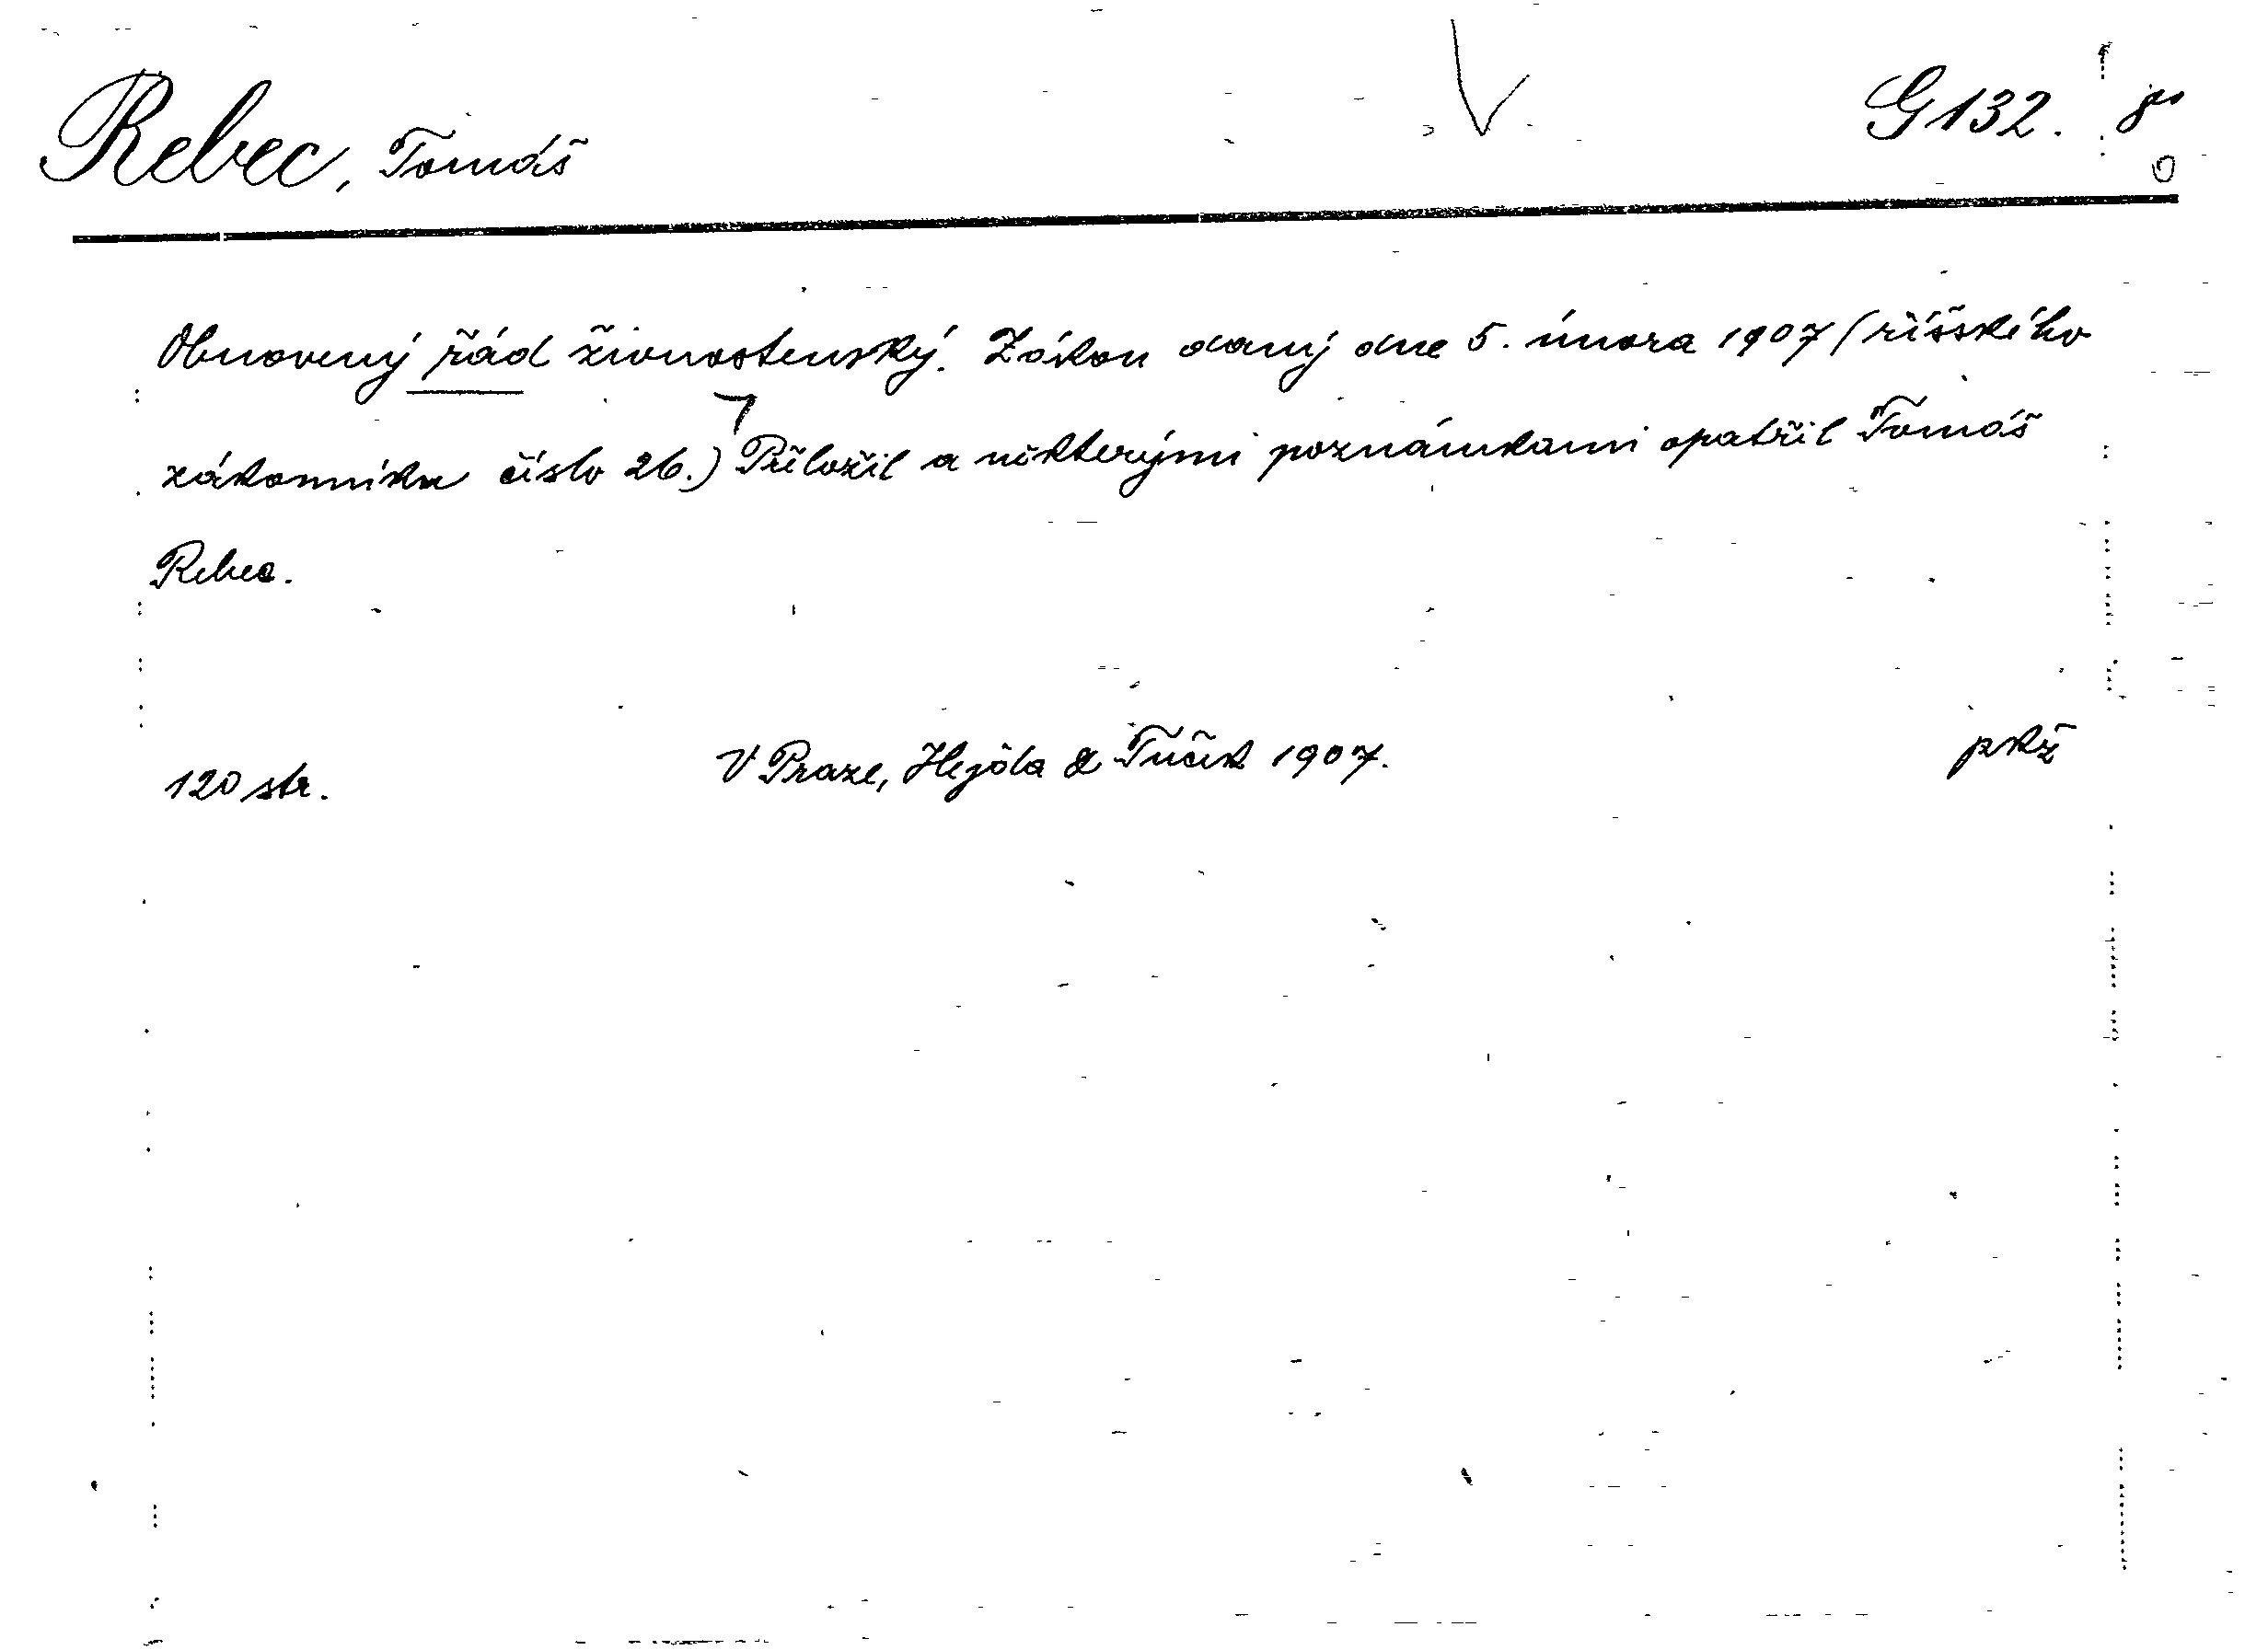 Rebec, Tomáš G 132.
Obnovený řád živnostenský. Zákon daný dne 5. února 1907 (říšského
zákonníku číslo 26.) Přeložil a některými poznámkami opatřil Tomáš
Rebec.
120 str. V Praze, Hejda & Tuček 1907. pkž